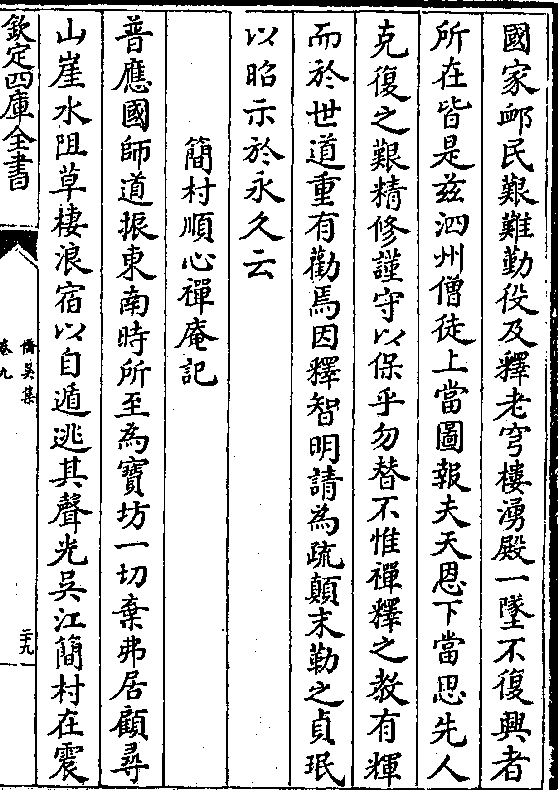 國家䘏民艱難勤役及釋老穹樓湧殿一墜不復興者
所在皆是兹泗州僧徒上當圖報夫天恩下當思先人
克復之艱精修謹守以保乎勿替不惟禪釋之教有輝
而於世道重有勸焉因釋智明請為疏顛末勒之貞珉
以昭示於永久云
簡村順心禪庵記
普應國師道振東南時所至為寶坊一切棄弗居顧尋
山崖水阻草棲浪宿以自遁逃其聲光吳江簡村在震
欽定四庫全書
僑吳集
卷九
二十九